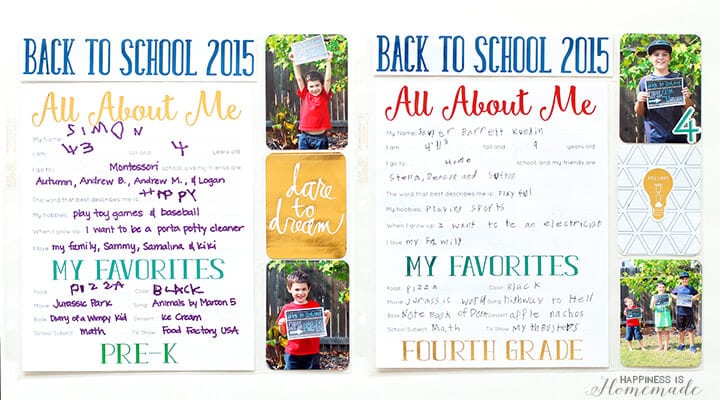 BACK TO SCHOOL 2015
All About Me
My Name: SIMON
I am 43 tall and 4 years old
I go to: Montessori school and my friends are
Autumn, Andrew B., Andrew M., & Logan
The word that best describes me is: HAPPY
My hobbies: play toy games & baseball
When I grow up I want to be a porta potty cleaner
I love my family, Sammy, Samalina & Kiki
MY FAVORITES
Food: PIZZA Color: BLACK
Movie: Jurassic Park Song: Animals by Maroon 5
Book: Diary of a Wimpy Kid Dessert: Ice Cream
School Subject: math TV Show: Food Factory USA
PRE-K
dare
to
dream
BACK TO SCHOOL 2015
All About Me
My Name: Sawyer Barrett Kundin
I am 4'11" tall and 9 years old
I go to: Home school and my friends are
Stella, Deacon and Sutton
The word that best describes me is: Playful
My hobbies: Playing sports
When I grow up I want to be an electricist
I love my family
MY FAVORITES
Food: pizza Color: Black
Movie: Jurassic world Song: highway to Hell
Book: Note Book of Doom Dessert: apple nachos
School Subject: Math TV Show: Mythbusters
FOURTH GRADE
4
HAPPINESS IS
Homemade